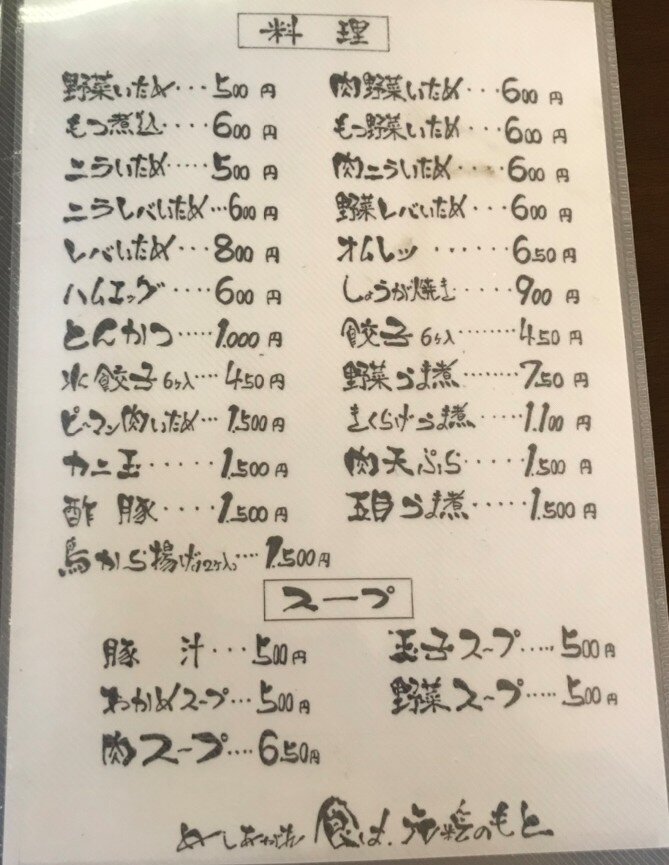 料理
野菜いため・・・500円
もつ煮込・・・・600円
ニラいため・・・・・500円
ニラレバいため・・・600円
レバいため・・・800円
ハムエッグ・・・・600円
とんかつ・・・・・1.000円
水餃子6ヶ入・・・・450円
ピーマン肉いため・・・1.500円
カニ玉・・・・・1.500円
酢豚・・・・1.500円
鳥から揚げ(12ヶ入)・・・・1.500円
肉野菜いため・・・600円
もつ野菜いため・・・600円
肉ニラいため・・・・600円
野菜レバいため・・・600円
オムレツ・・・・・・650円
しょうが焼き・・・・・900円
餃子6ヶ入・・・・・450円
野菜うま煮・・・・・・・750円
きくらげうま煮・・・・・1.100円
肉天ぷら・・・・・1.500円
五目うま煮・・・・・1.500円
スープ
豚汁・・・500円
わかめスープ・・・500円
肉スープ・・・・650円
玉子スープ・・・・・500円
野菜スープ・・・・・500円
めしあがれ 食は、元社のもと